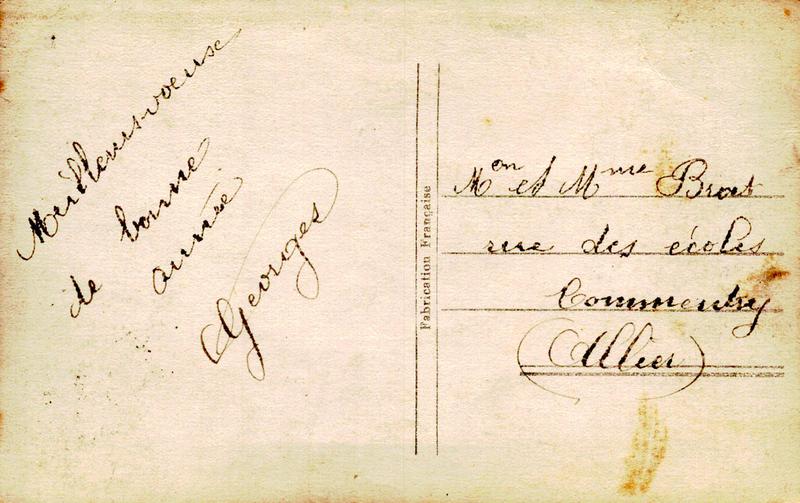 Meilleurs voeuse
de bonne
année
Georges
Fabrication Française
Mon et Mme Brat
rue des écoles
Commentry
(Allier)